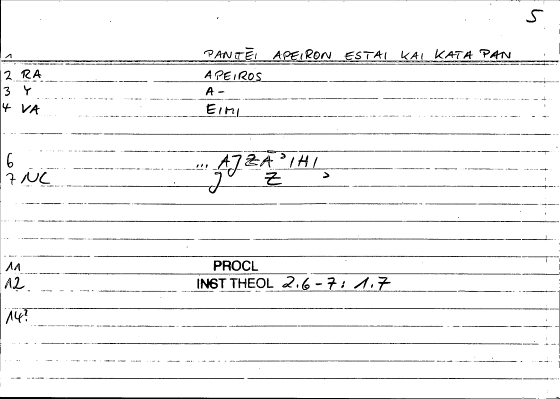 5
1 PANTĒI APEIRON ESTAI KAI KATA PAN
2 RA APEIROS
3 Y A-
4 VA EIMI
6
7 NC
11 PROCL
12 INST THEOL 2.6-7: 1.7
14?